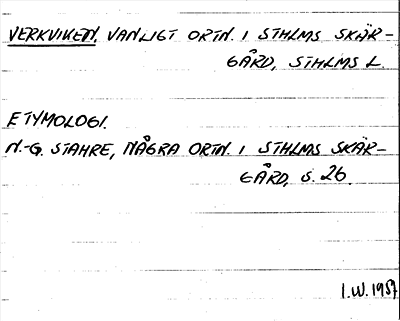 VERKVIKEN. VANLIGT ORTN. I STHLMS SKÄR-
GÅRD, STHLMS L.
ETYMOLOGI.
N.-G. STAHRE, NÅGRA ORTN. I STHLMS SKÄR-
GÅRD, S. 26.
I.W. 1957